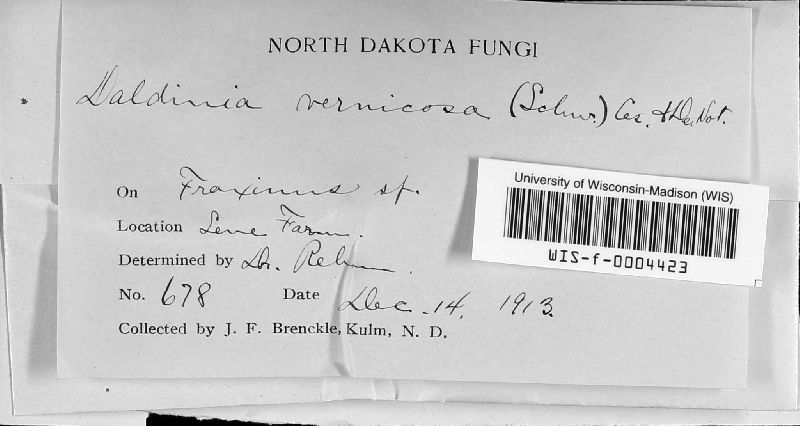 NORTH DAKOTA FUNGI
Daldinia vernicosa (Schw.) Ces. & De. Not.
On Fraxinus sp.
Location Farm.
Determined by Dr. Rehm.
No. 678 Date Dec. 14, 1913.
Collected by J. F. Brenckle, Kulm, N. D.
University of Wisconsin-Madison (WIS)
WIS-f-0004423